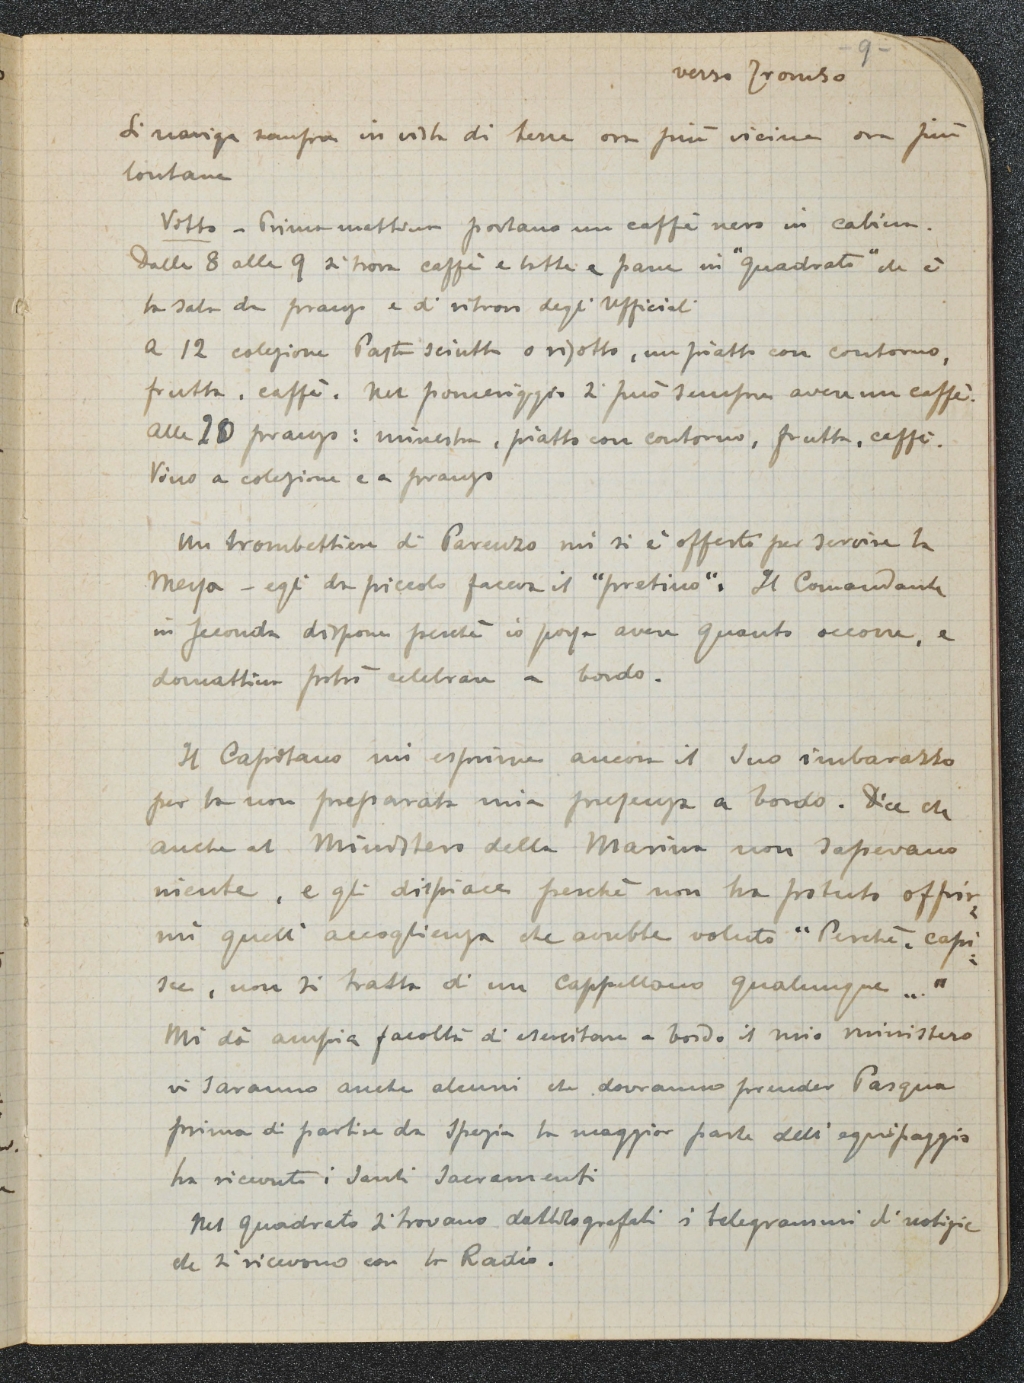 - 9 -
verso Tromso
Si naviga sempre in vista di terre ora più vicine ora più
lontane
Vitto - Prima mattina portano un caffè nero in cabina.
Dalle 8 alle 9 si trova caffè e latte e pane in "quadrato" che è
la sala da pranzo e di ritrovo degli Ufficiali
A 12 colezione Pasta sciutta o risotto, un piatto con contorno,
frutta, caffè. Nel pomeriggio si può sempre avere un caffè.
Alle 20 pranzo: minestra, piatto con contorno, frutta, caffè.
Vino a colezione e a pranzo
Un trombettiere di Parenzo mi si è offerto per servire la
Messa - egli da piccolo faceva il "pretino". Il Comandante
in seconda dispone perchè io possa avere quanto occorre, e
domattina potrò celebrare a bordo.
Il Capitano mi esprime ancora il suo imbarazzo
per la non preparata mia presenza a bordo. Dice che
anche al Ministero della Marina non sapevano
niente, e gli dispiace perchè non ha potuto offrir-
mi quell' accoglienza che avrebbe voluto "Perchè, capi-
sce, non si tratta di un Cappellano qualunque ..."
Mi dà ampia facoltà di esercitare a bordo il mio ministero
vi saranno anche alcuni che dovranno prender Pasqua
prima di partire da Spezia la maggior parte dell' equipaggio
ha ricevuto i Santi Sacramenti
Nel quadrato si trovano dattilografati i telegrammi di notizie
che si ricevono con la Radio.